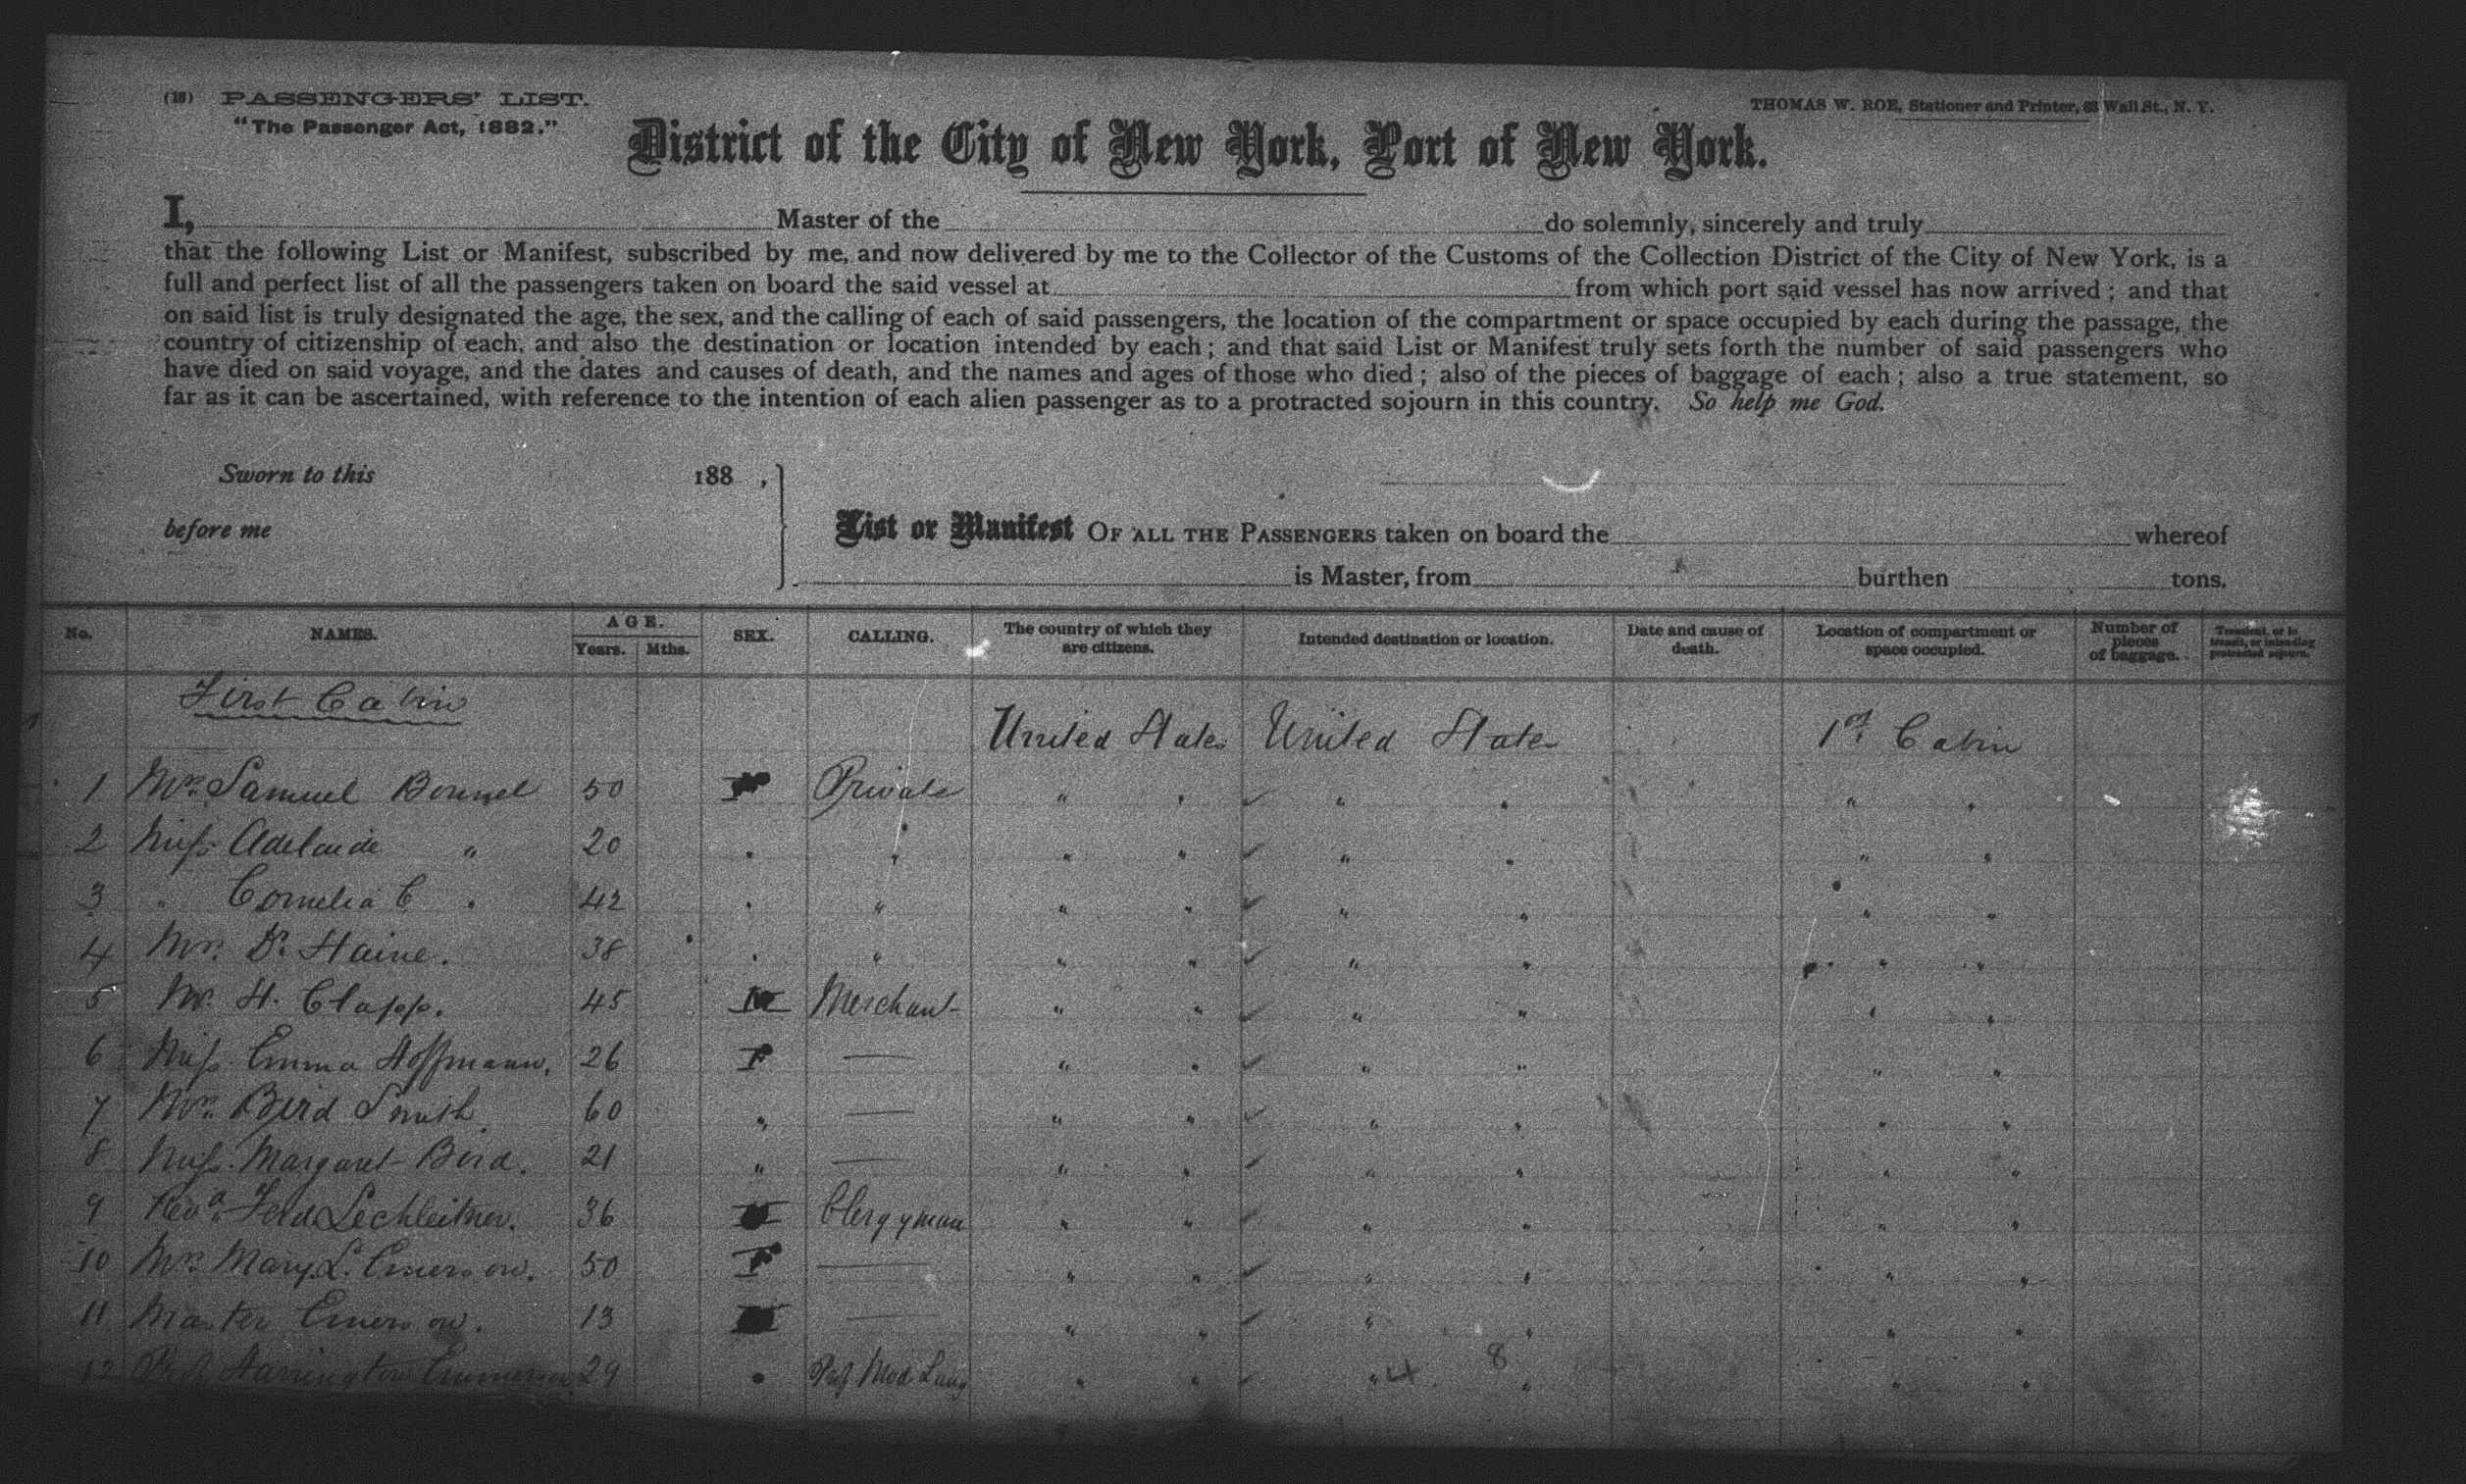 (18) PASSENGERS' LIST.
"The Passenger Act, 1882."
THOMAS W. ROE, Stationer and Printer, 63 Wall St., N. Y.
District of the City of New York, Port of New York.
I, Master of the do solemnly, sincerely and truly
that the following List or Manifest, subscribed by me, and now delivered by me to the Collector of the Customs of the Collection District of the City of New York, is a
full and perfect list of all the passengers taken on board the said vessel at from which port said vessel has now arrived; and that
on said list is truly designated the age, the sex, and the calling of each of said passengers, the location of the compartment or space occupied by each during the passage, the
country of citizenship of each, and also the destination or location intended by each; and that said List or Manifest truly sets forth the number of said passengers who
have died on said voyage, and the dates and causes of death, and the names and ages of those who died; also of the pieces of baggage of each; also a true statement, so
far as it can be ascertained, with reference to the intention of each alien passenger as to a protracted sojourn in this country. So help me God.
Sworn to this 188 ,
before me
List or Manifest OF ALL THE PASSENGERS taken on board the whereof
is Master, from burthen tons.
No. NAMES. AGE. Years. Mths. SEX. CALLING. The country of which they are citizens. Intended destination or location. Date and cause of death. Location of compartment or space occupied. Number of pieces of baggage. Transient, or in transit, or intending protracted sojourn.
First Cabin
United States United States 1st Cabin
1 Mrs. Samuel Bonnel 50 F Private " " " " " "
2 Miss Adelaide " 20 " " " " " " " "
3 " Cornelia C " 42 " " " " " " " "
4 Mrs. Dr. Haine. 38 " " " " " " " "
5 Mr. H. Clapp. 45 M Merchant " " " " " "
6 Miss. Emma Hoffmann. 26 F — " " " " " "
7 Mrs. Bird Smith. 60 " — " " " " " "
8 Miss. Margaret Bird. 21 " — " " " " " "
9 Revd. Ferd. Lechleitner. 36 M Clergyman " " " " " "
10 Mrs. Mary L. Emerson. 50 F — " " " " " "
11 Master Emerson. 13 — " " " " " "
12 Prof Harrington Emmerson 29 " Prof Mod Lang " " " 4 8 " " "